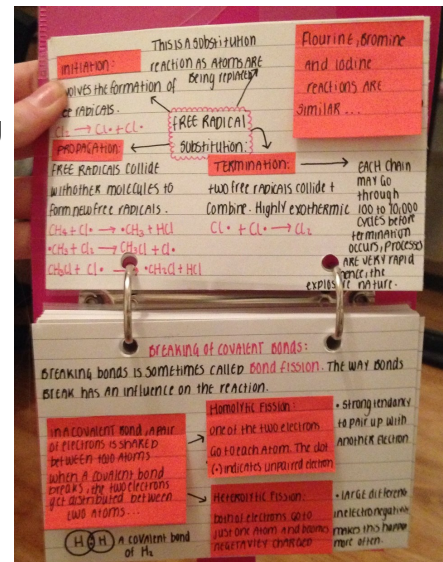 This is a substitution
reaction as atoms are
being replaced
Flourine, Bromine
and iodine
reactions are
similar ...
initiation:
volves the formation of
ee radicals.
Cl₂ → Cl• + Cl•
FREE RADICAL
Substitution:
PROPAGATION:
FREE RADICALS COLLIDE
with other molecules to
form new free radicals.
CH₄ + Cl• → •CH₃ + HCl
•CH₃ + Cl₂ → CH₃Cl + Cl•
CH₃Cl + Cl• → •CH₂Cl + HCl
TERMINATION:
two free radicals collide +
combine. Highly exothermic
Cl• + Cl• → Cl₂
EACH CHAIN
MAY GO
through
100 to 10,000
cycles before
termination
occurs, processes
ARE VERY RAPID
hence, the
explosive nature.
BREAKING OF COVALENT BONDS:
Breaking bonds is sometimes called Bond fission. The way bonds
break has an influence on the reaction.
in a covalent bond, a pair
of electrons is shared
between two atoms
when a covalent bond
breaks, the two electrons
get distributed between
two atoms...
H H A covalent bond
of H₂
Homolytic Fission:
one of the two electrons
go to each atom. The dot
(•) indicates unpaired electron
• strong tendancy
to pair up with
another electron.
Heterolytic fission:
both of electrons go to
just one atom and becomes
negetavley charged
• large differene
in electronegativity
makes this happen
more often.